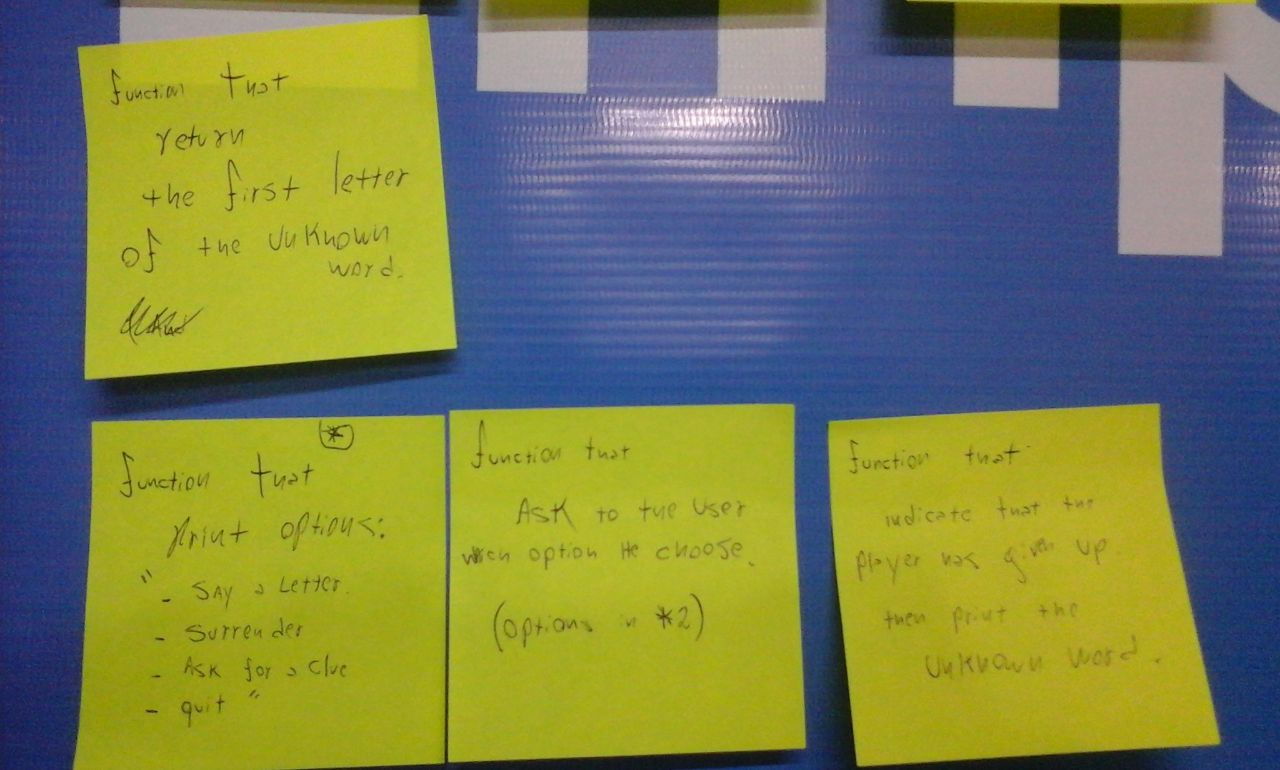 function that
return
the first letter
of the unknown
word.
*
function that
print options:
" - SAY a Letter.
- Surrender
- ASK for a clue
- quit "
function that
ASK to the user
option He choose.
(options in *2)
function that
indicate that the
player has given up
then print the
unknown word.